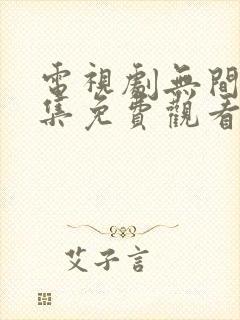 電視劇無間
集免費觀看
艾子言